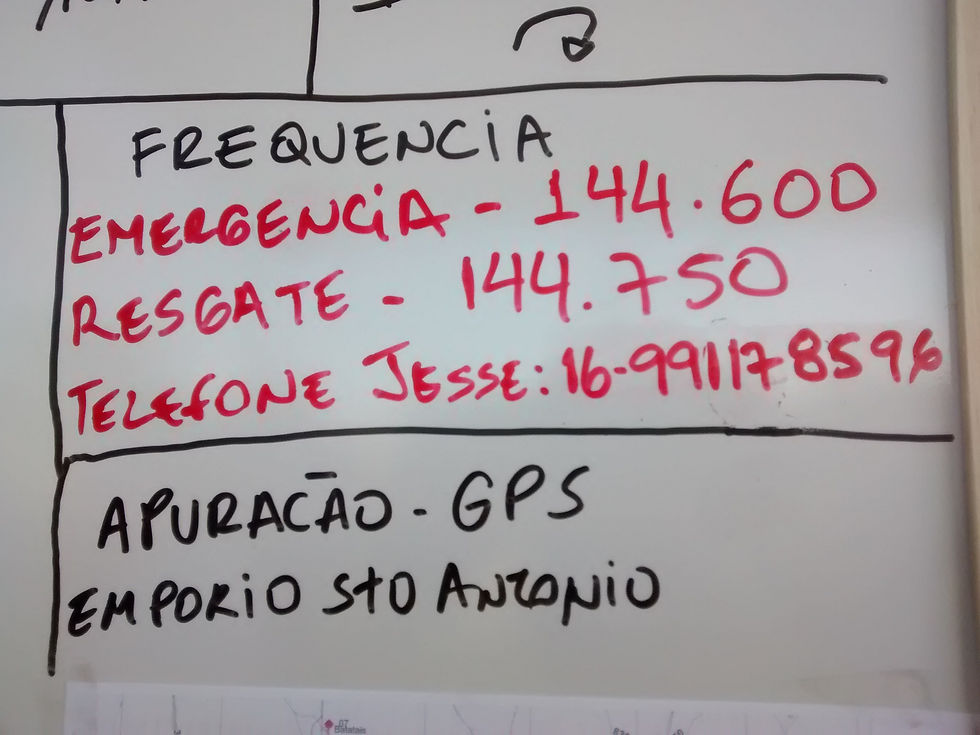 FREQUENCIA
EMERGENCIA - 144.600
RESGATE - 144.750
TELEFONE JESSE: 16-991178596
APURACÃO - GPS
EMPORIO STO ANTONIO
07
Batatais